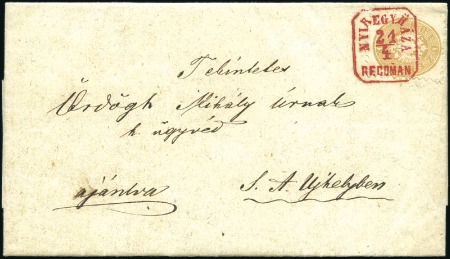 NYIREGYHÁZA
21
4
RECOMAN.
Tekintetes
Ördögh Mihály Úrnak
h. ügyvéd
ajánlva
S. A. Ujhelyben